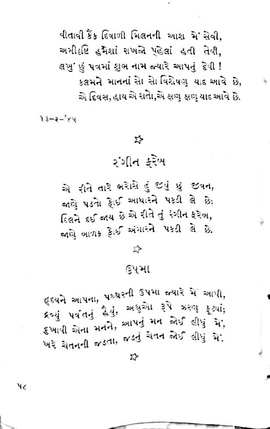 વીતાવી કૈંક દિવાળી મિલનની આશ મેં સેવી,
અમીદૃષ્ટિ હમેશાં રાખજો પહેલાં હતી તેવી,
લખું છું પત્રમાં શુભ નામ જ્યારે આપનું દેવી !
કલમને માનનાં સો સો વિશેષણ યાદ આવે છે,
એ દિવસ, હાય એ રાતો, એ ક્ષણ ક્ષણ યાદ આવે છે.
૧૩-૨-'૪૫
રંગીન ફરેબ
એ રીતે તારે ભરોસે તું જીવું છું જીવન,
જાણે પડતો કોઈ આધારને પકડી લે છે;
દિલને દઈ જાય છે એ રીતે તું રંગીન ફરેબ,
જાણે બાળક કોઈ અંગારને પકડી લે છે.
ઉપમા
હૃદયને આપના, પથ્થરની ઉપમા જ્યારે મેં આપી,
દ્રવ્યું પર્વતનું હૈયું, અશ્રુઓ રૂપે ઝરણ ફૂટ્યાં;
દુખાવી એના મનને, આપનું મન જોઈ લીધું મેં,
ખરે ચેતનની જડતા, જડનું ચેતન જોઈ લીધું મેં.
૫૮